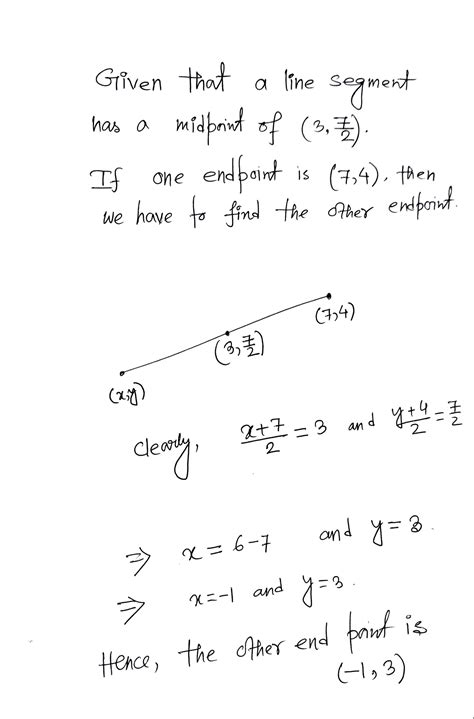 Given that a line segment
has a midpoint of (3, 7/2).
If one endpoint is (7,4), then
we have to find the other endpoint.
(7,4)
(3, 7/2)
(x,y)
Clearly, x+7/2 = 3 and y+4/2 = 7/2
⇒ x = 6-7 and y = 3.
⇒ x=-1 and y=3.
Hence, the other end point is
(-1,3)